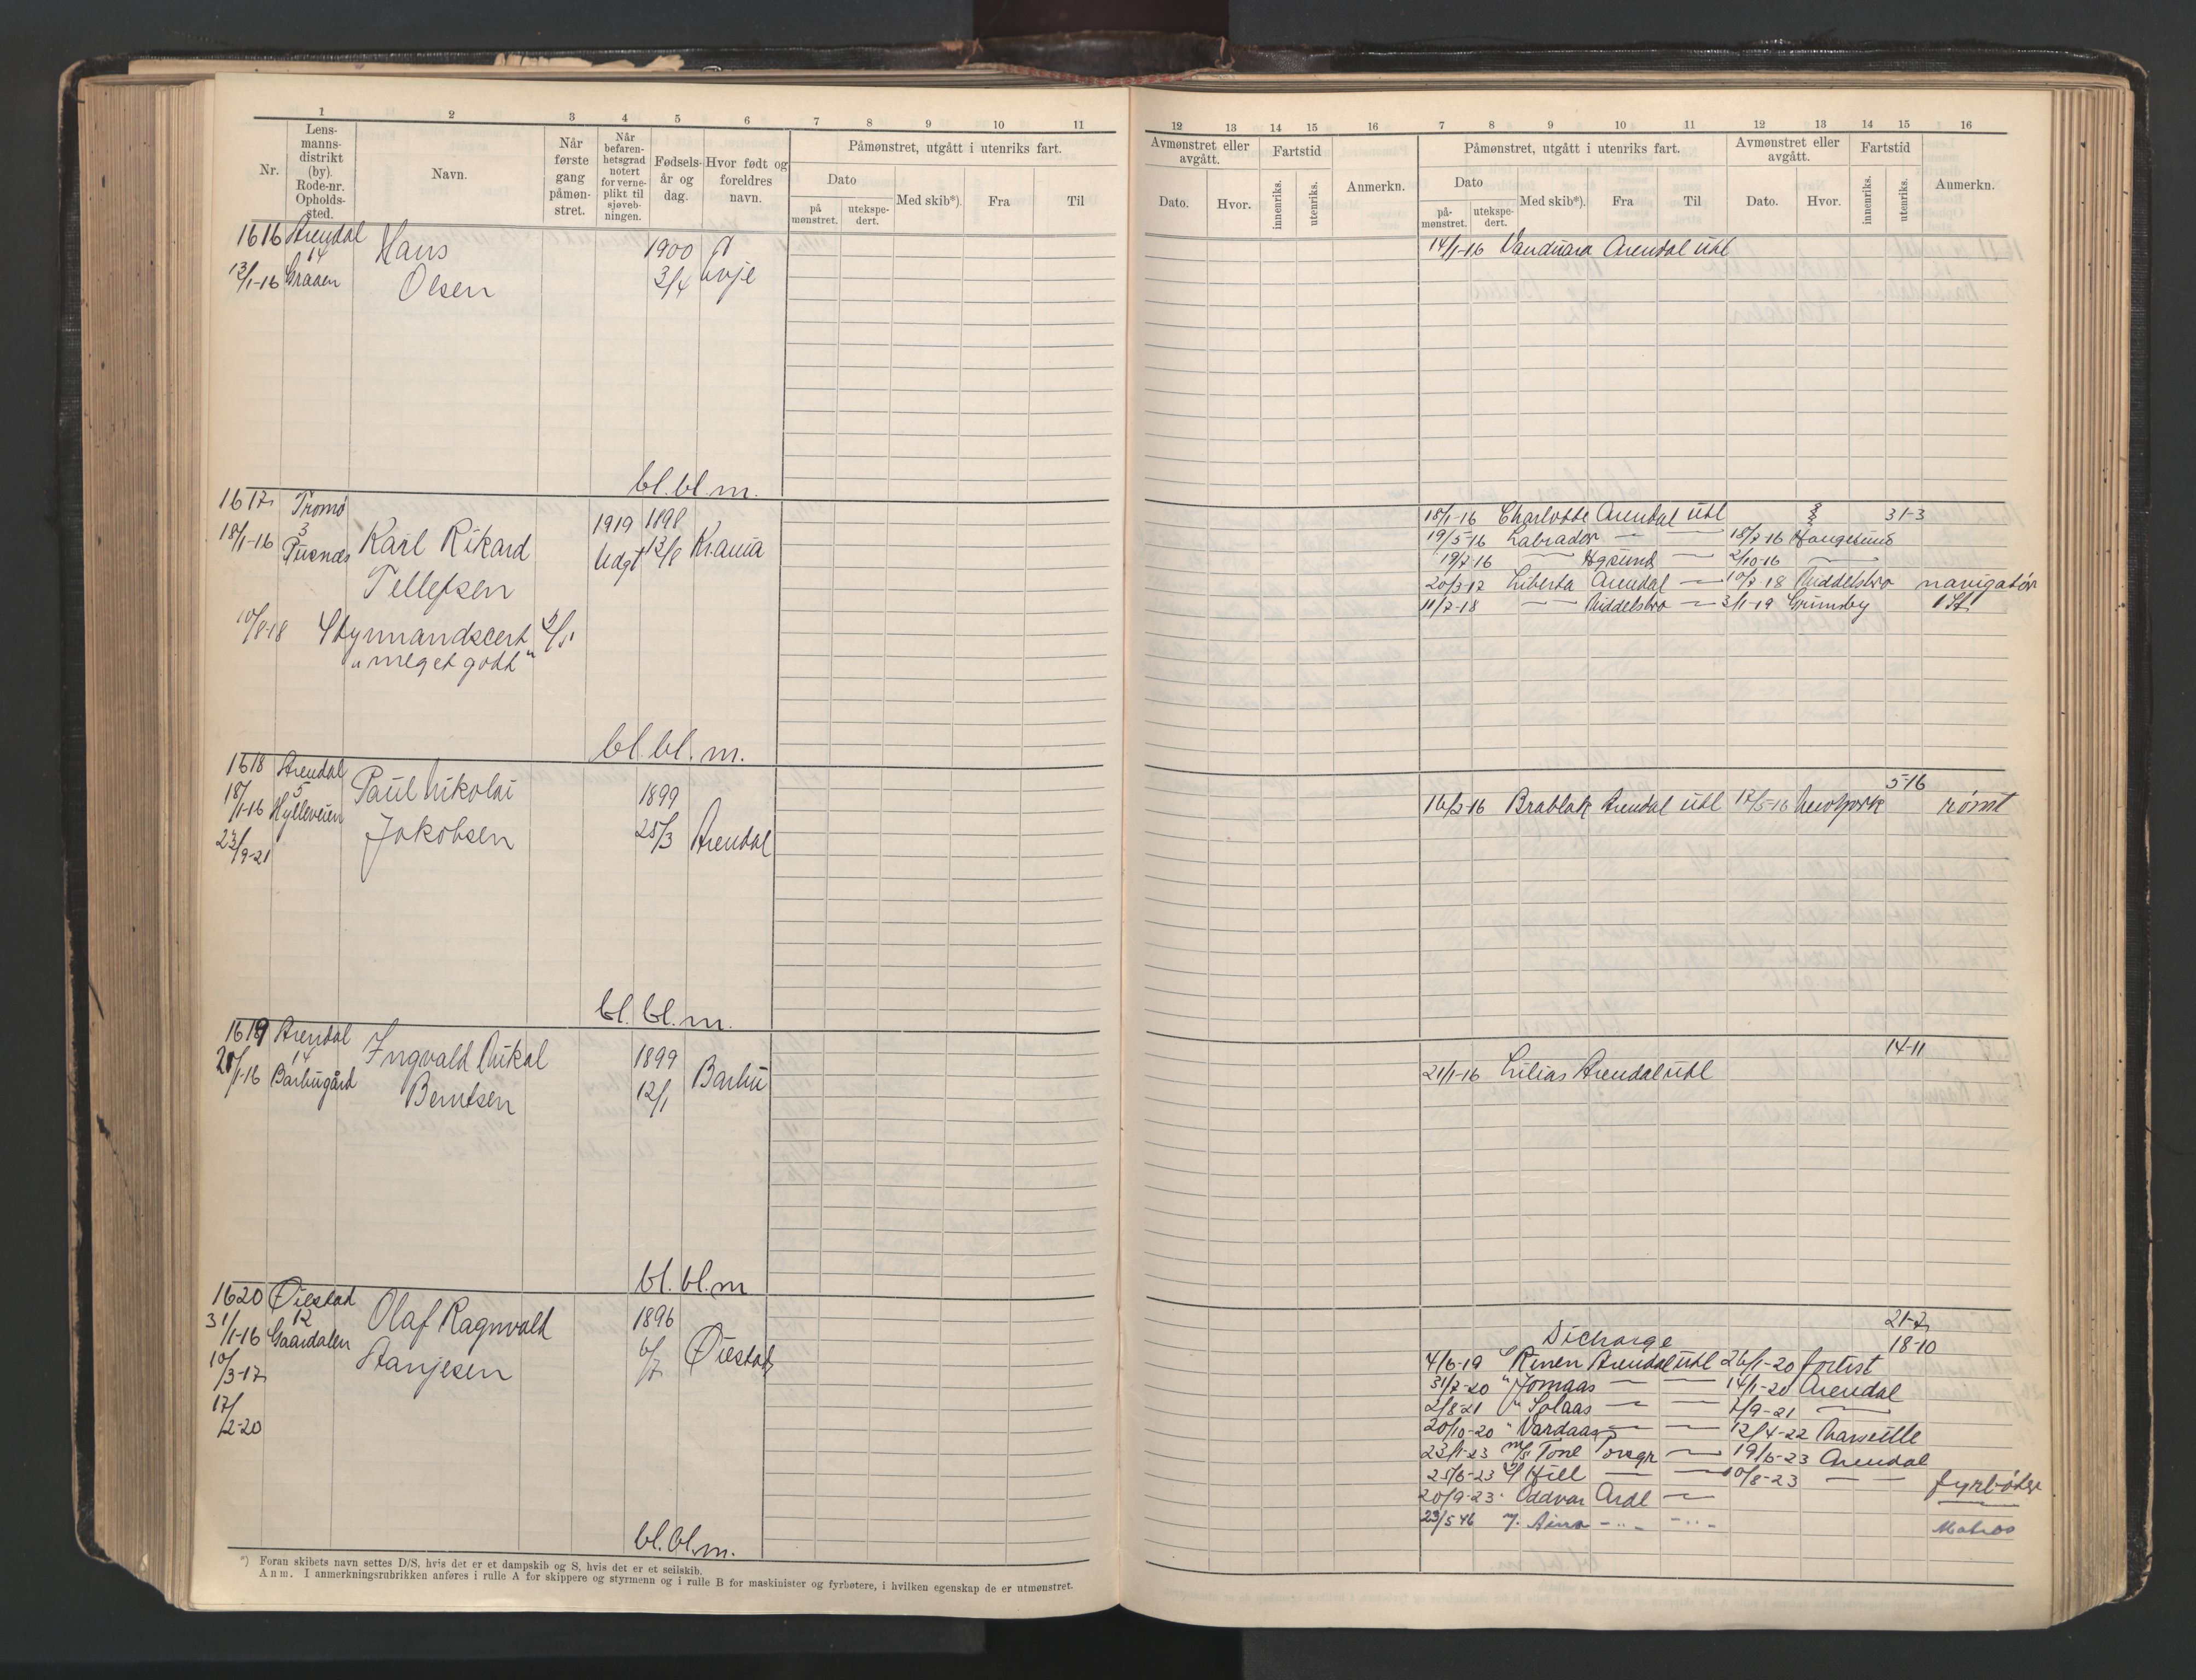 1 2 3 4 5 6 7 8 9 10 11
Nr.
Lens-
manns-
distrikt
(by).
Rode-nr.
Opholds-
sted.
Navn.
Når
første
gang
påmøn-
stret.
Når
befaren-
hetsgrad
notert
for verne-
plikt til
sjøveb-
ningen.
Fødsels-
år og
dag.
Hvor født og
foreldres
navn.
Påmønstret, utgått i utenriks fart.
Dato
på
mønstret.
utekspe-
dert.
Med skib*).
Fra
Til
1616 Arendal
14
13/1-16 Graaen
Hans
Olsen
1900
3/4
Evje
bl. bl. m.
1617 Tromø
3
18/1-16 Pusnes
Karl Rikard
Tellefsen
1919
Udgt
1898
13/8
Kr.ania
10/8-18 Styrmandscert
"meget godt"
bl. bl. m.
1618 Arendal
5
18/1-16 Hylleveien
23/9-21
Paul Nikolai
Jakobsen
1899
25/3
Arendal
bl. bl. m.
1619 Arendal
14
20/1-16 Barbugård
Ingvald Nikal
Berntsen
1899
12/1
Barbu
bl. bl. m
1620 Øiestad
12
31/1-16 Gaardalen
10/3-17
17/2-20
Olaf Ragnvald
Aanjesen
1896
6/7
Øiestad
bl. bl. m.
*) Foran skibets navn settes D/S, hvis det er et dampskib og S, hvis det er et seilskib.
Anm. I anmerkningsrubrikken anføres i rulle A for skippere og styrmenn og i rulle B for maskinister og fyrbøtere, i hvilken egenskap de er utmønstret.
12 13 14 15 16 7 8 9 10 11 12 13 14 15 16
Avmønstret eller
avgått.
Dato.
Hvor.
Fartstid
innenriks.
utenriks.
Anmerkn.
Påmønstret, utgått i utenriks fart.
Dato
på-
mønstret.
utekspe-
dert.
Med skib*).
Fra
Til
Avmønstret eller
avgått.
Dato.
Hvor.
Fartstid
innenriks.
utenriks.
Anmerkn.
14/1-16 Vanduara Arendal utl
18/1-16 Charlotte Arendal utl 31-3
19/5-16 Labrador — — 18/7-16 Haugesund
19/7-16 — Hgsund — 2/10-16 —
20/3-17 Liberta Arendal — 10/7-18 Middelsbro navigatør
11/7-18 — Middelsbro — 3/1-19 Grimsby 1 St
5-16
16/2-16 Brablok Arendal utl 12/5-16 Newyork rømt
14-11
21/1-16 Lilias Arendal utl
21-7
Dicharge 18-10
4/6-19 Rinen Arendal utl 26/1-20 forlist
31/7-20 " Jomaas — — 14/1-20 Arendal
2/8-21 " Solaas — — 7/9-21 —
20/10-20 " Vardaas — — 12/4-22 Marseille
23/1-23 m/s Tone Porsgr — 19/6-23 Arendal
25/6-23 Hill — — 10/8-23 — —
fyrbøter
20/9-23 Oddvar Ardl —
23/5 46 Aina - " - - " - Matros